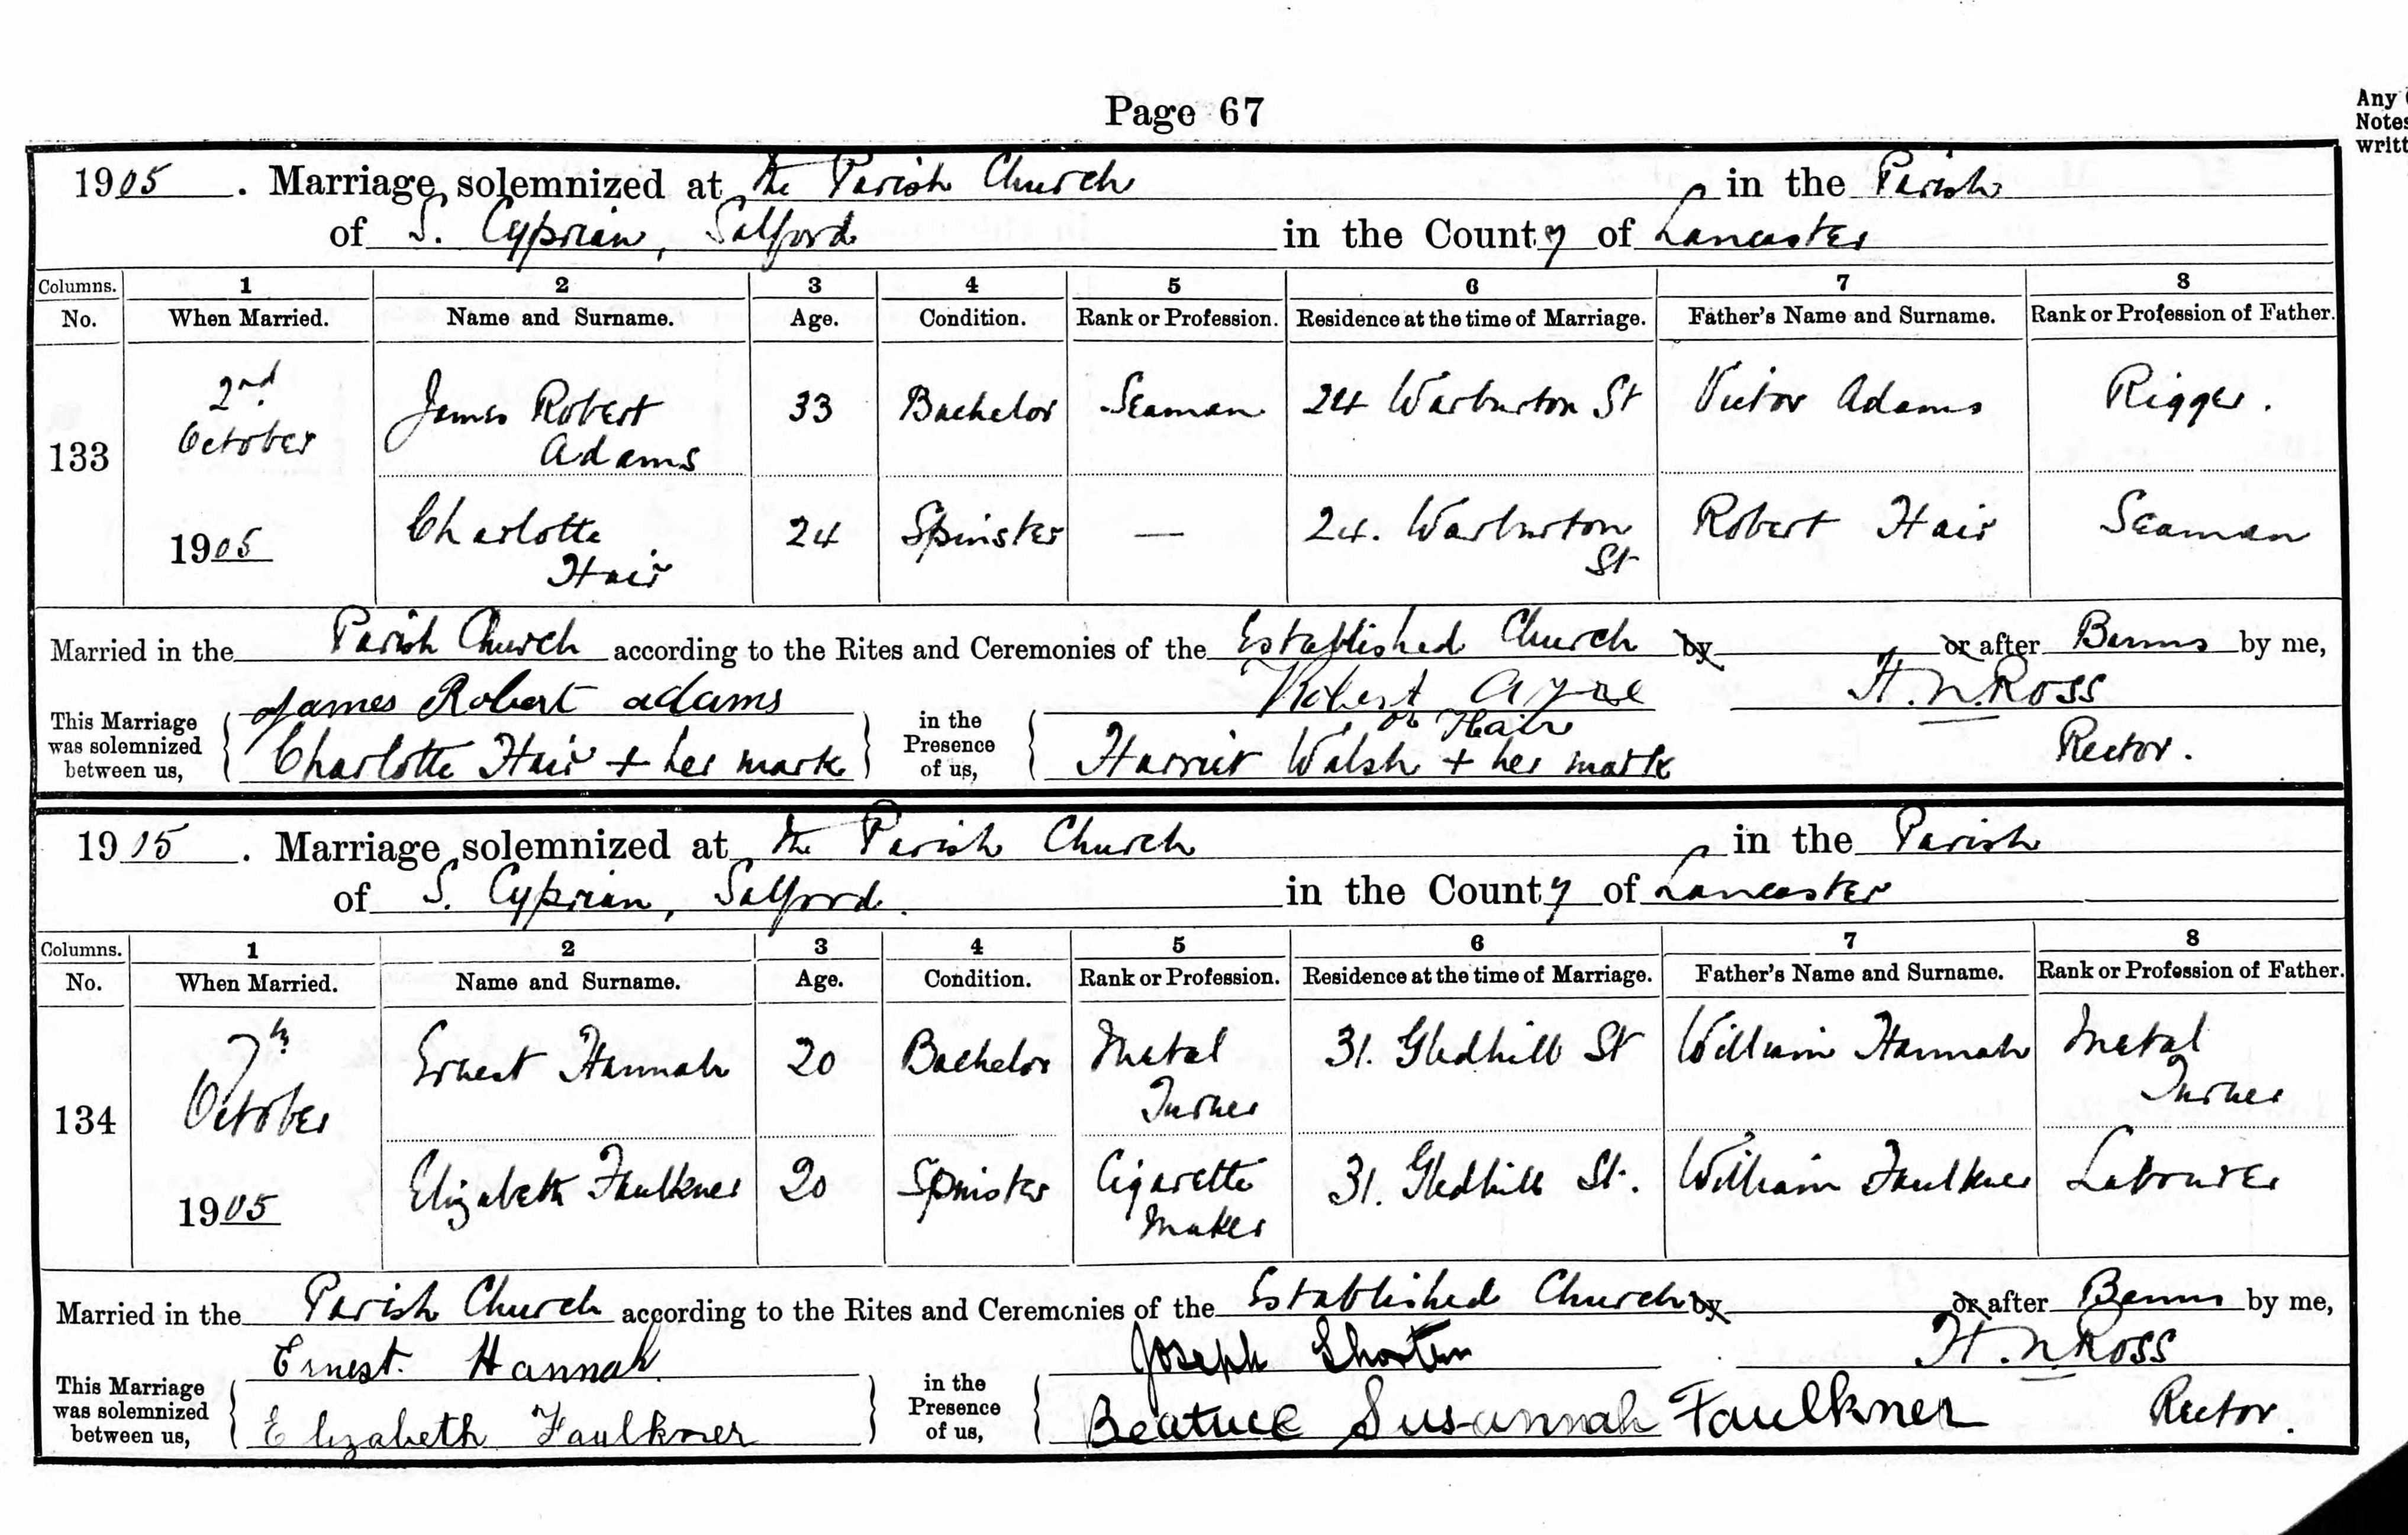 Page 67
Any
Notes
writt
1905. Marriage solemnized at the Parish Church in the Parish
of S. Cyprian, Salford in the County of Lancaster
Columns. 1 2 3 4 5 6 7 8
No. When Married. Name and Surname. Age. Condition. Rank or Profession. Residence at the time of Marriage. Father's Name and Surname. Rank or Profession of Father.
133 2nd October 1905 James Robert Adams 33 Bachelor Seaman 24 Warburton St Victor Adams Rigger.
Charlotte Hair 24 Spinster — 24. Warburton St Robert Hair Seaman
Married in the Parish Church according to the Rites and Ceremonies of the Established Church by or after Banns by me,
This Marriage was solemnized between us, James Robert Adams in the Presence of us, Robert H. N. Ross
or Hair
Charlotte Hair + her mark Harriet Walsh + her mark Rector.
1905. Marriage solemnized at the Parish Church in the Parish
of S. Cyprian, Salford. in the County of Lancaster
Columns. 1 2 3 4 5 6 7 8
No. When Married. Name and Surname. Age. Condition. Rank or Profession. Residence at the time of Marriage. Father's Name and Surname. Rank or Profession of Father.
134 7th October 1905 Ernest Hannah 20 Bachelor Metal Turner 31. Gledhill St William Hannah Metal Turner
Elizabeth Faulkner 20 Spinster Cigarette Maker 31. Gledhill St. William Faulkner Labourer
Married in the Parish Church according to the Rites and Ceremonies of the Established Church by or after Banns by me,
This Marriage was solemnized between us, Ernest. Hannah. in the Presence of us, Joseph Shorten H. N. Ross
Elizabeth Faulkner Beatrice Susannah Faulkner Rector.